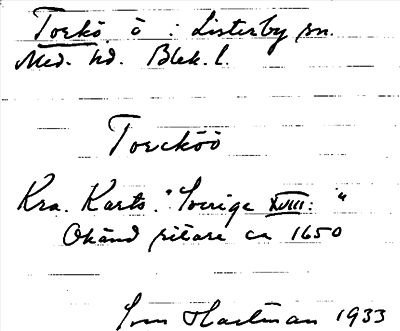 Torkö ö i Listerby sn.
Med. hd. Blek. l.
Torcköö
Kra. Karts. "Sverige XVIII: "
Okänd ritare ca 1650
Hartman 1933